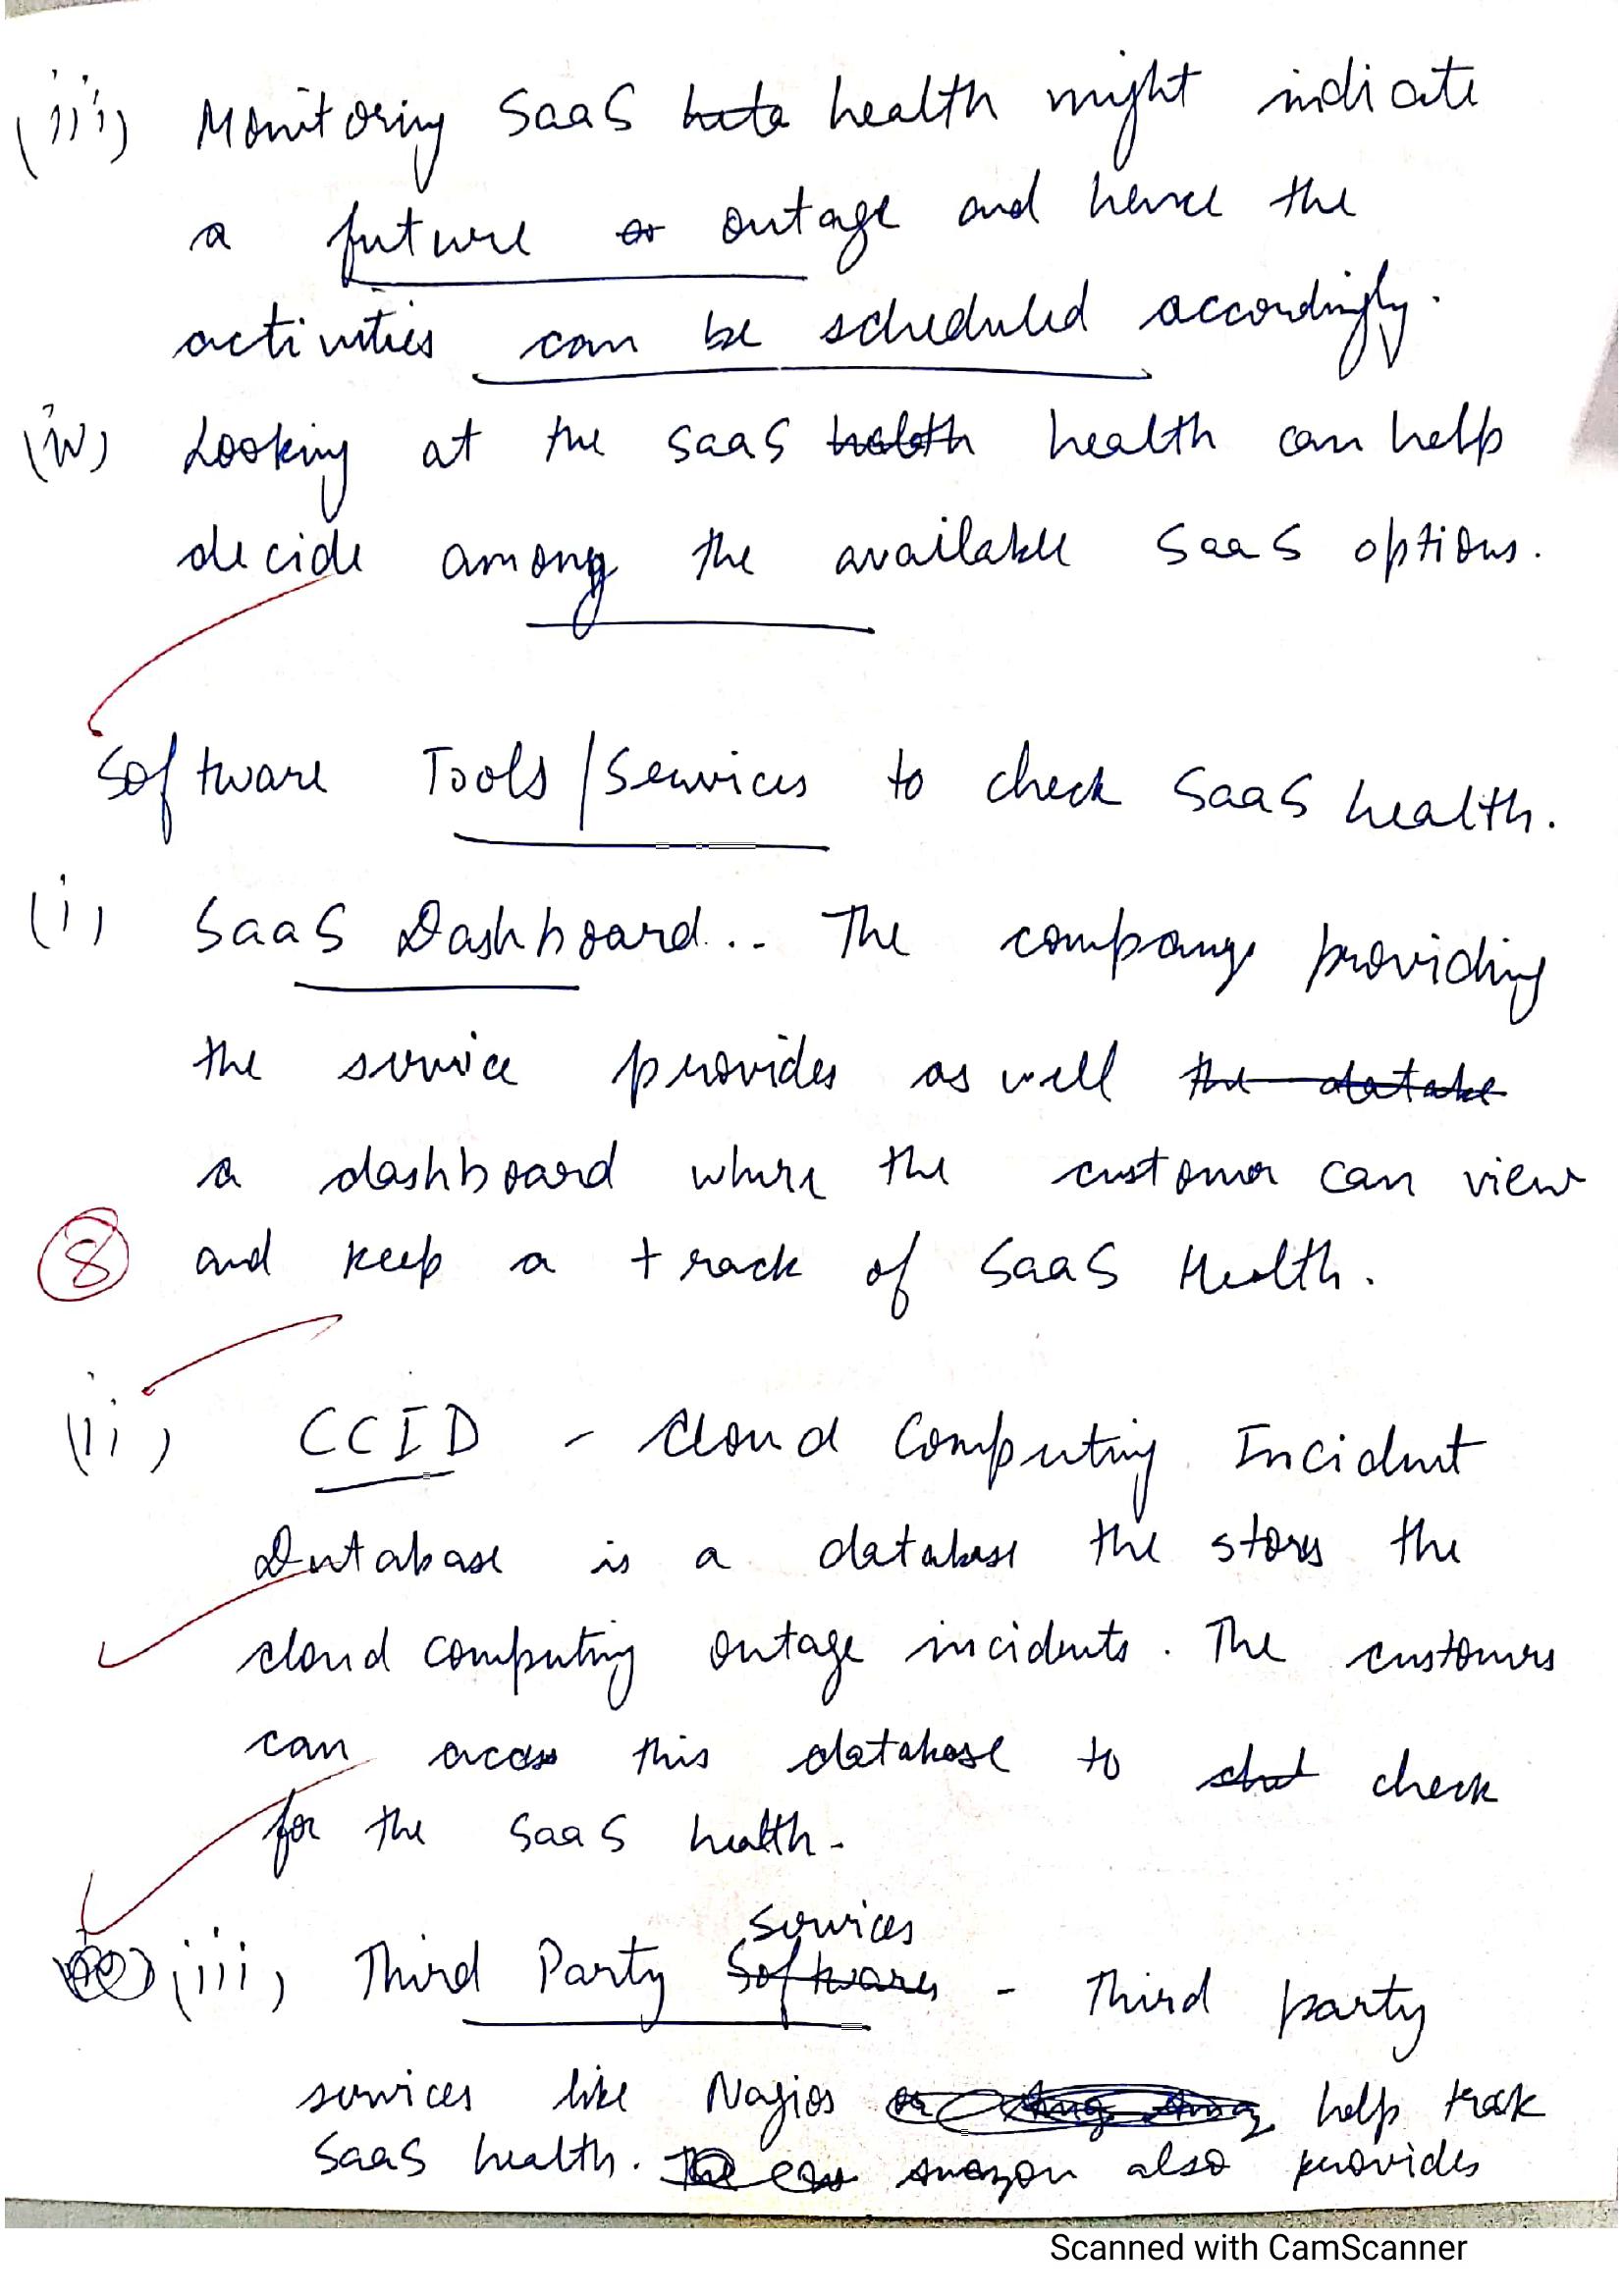 (iii) Monitoring SaaS health might indicate
a future outage and hence the
activities can be scheduled accordingly.
(iv) Looking at the SaaS health can help
decide among the available SaaS options.
Software Tools/Services to check SaaS health.
(i) SaaS Dashboard.. - The company providing
the service provides as well
a dashboard where the customer can view
8 and keep a track of SaaS Health.
(ii) CCID - Cloud Computing Incident
Database is a database the stores the
cloud computing outage incidents. The customers
can access this database to check
for the SaaS health.
(iii) Third Party Services - Third party
services like Nagios help track
SaaS health. Amazon also provides
Scanned with CamScanner